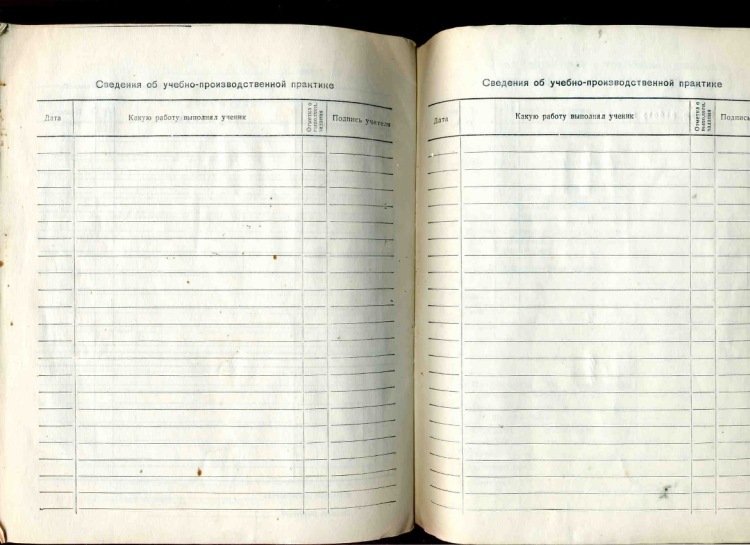 Сведения об учебно-производственной практике
Дата
Какую работу выполнял ученик
Отметка о
выполнен.
задания
Подпись учителя
Сведения об учебно-производственной практике
Дата
Какую работу выполнял ученик
Отметка о
выполнен.
задания
Подпись